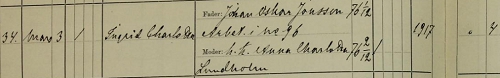 Fader: Johan Oskar Jonsson 76 6/12
34. mars 3 / Ingrid Charlotta Arbet. i no 96 1917 " 4
Moder: h. h. Anna Charlotta 76 2/12 /
Lundholm